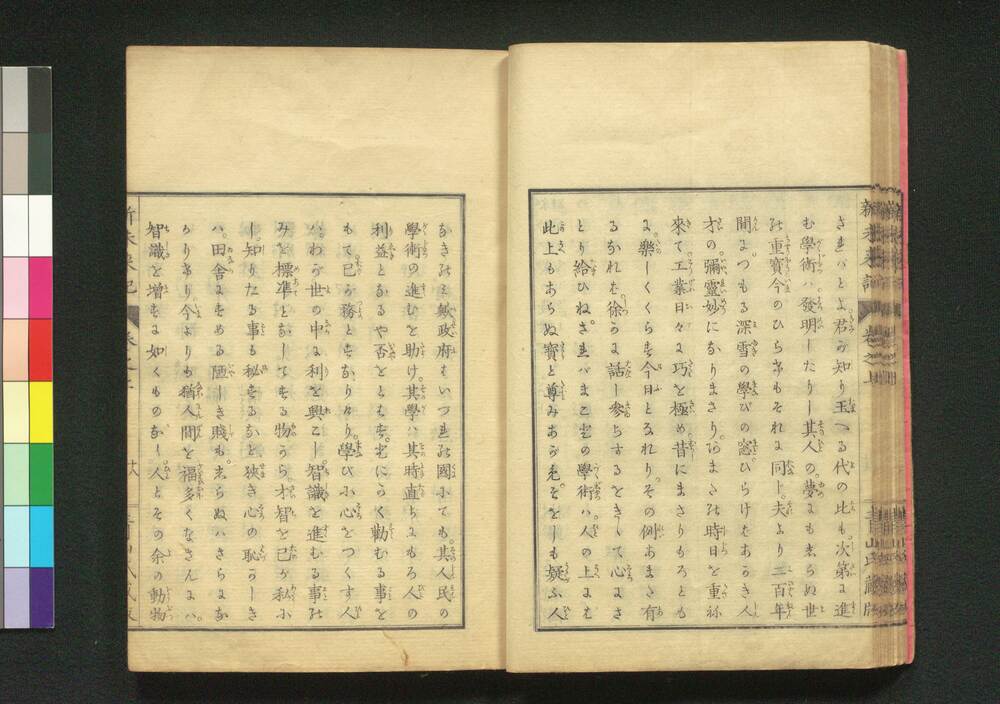 新未来記 巻之上
青山氏藏版
さればとよ君が知り玉へる代の比も次第に進
む學術の發明したりし其人の夢にもまらぬ世
の重寳今のひらけもそれに同じ夫より二百年
間につもる深雪の學びの窓ひらけたあらき人
才の彌靈妙になりまさりあまたの時日を重ね
來て工業日々に巧を極め昔にまさりもろとも
に樂しくくらす今日となれりその例あまた有
るなれた徐ろに話し參らするをきゝて心にさ
とり給ひねされバまことの學術ハ人の上にも
此上もあらぬ寳と尊みあがむをもし疑ふ人
なきのと敏政府もいづれの國にても其人民の
學術の進むを助け其學ハ其時直ちにもろ人の
利益となるや否をともにひろく勸むる事を
もて己が務となり學び心をつくす人
ハわが世の中に利を興こし智識を進むる事の
みを標凖となしてする物から才智を己が私に
し知りたる事も秘するなど狹き心の恥かしき
ハ田舍にすめる陋しき賤もまらぬハきらにな
かりけり今よりも猶人間を福多くなさんにハ
智識を増すに如くものなし人とその余の動物
新未来記 巻之上 十六 青山氏藏版